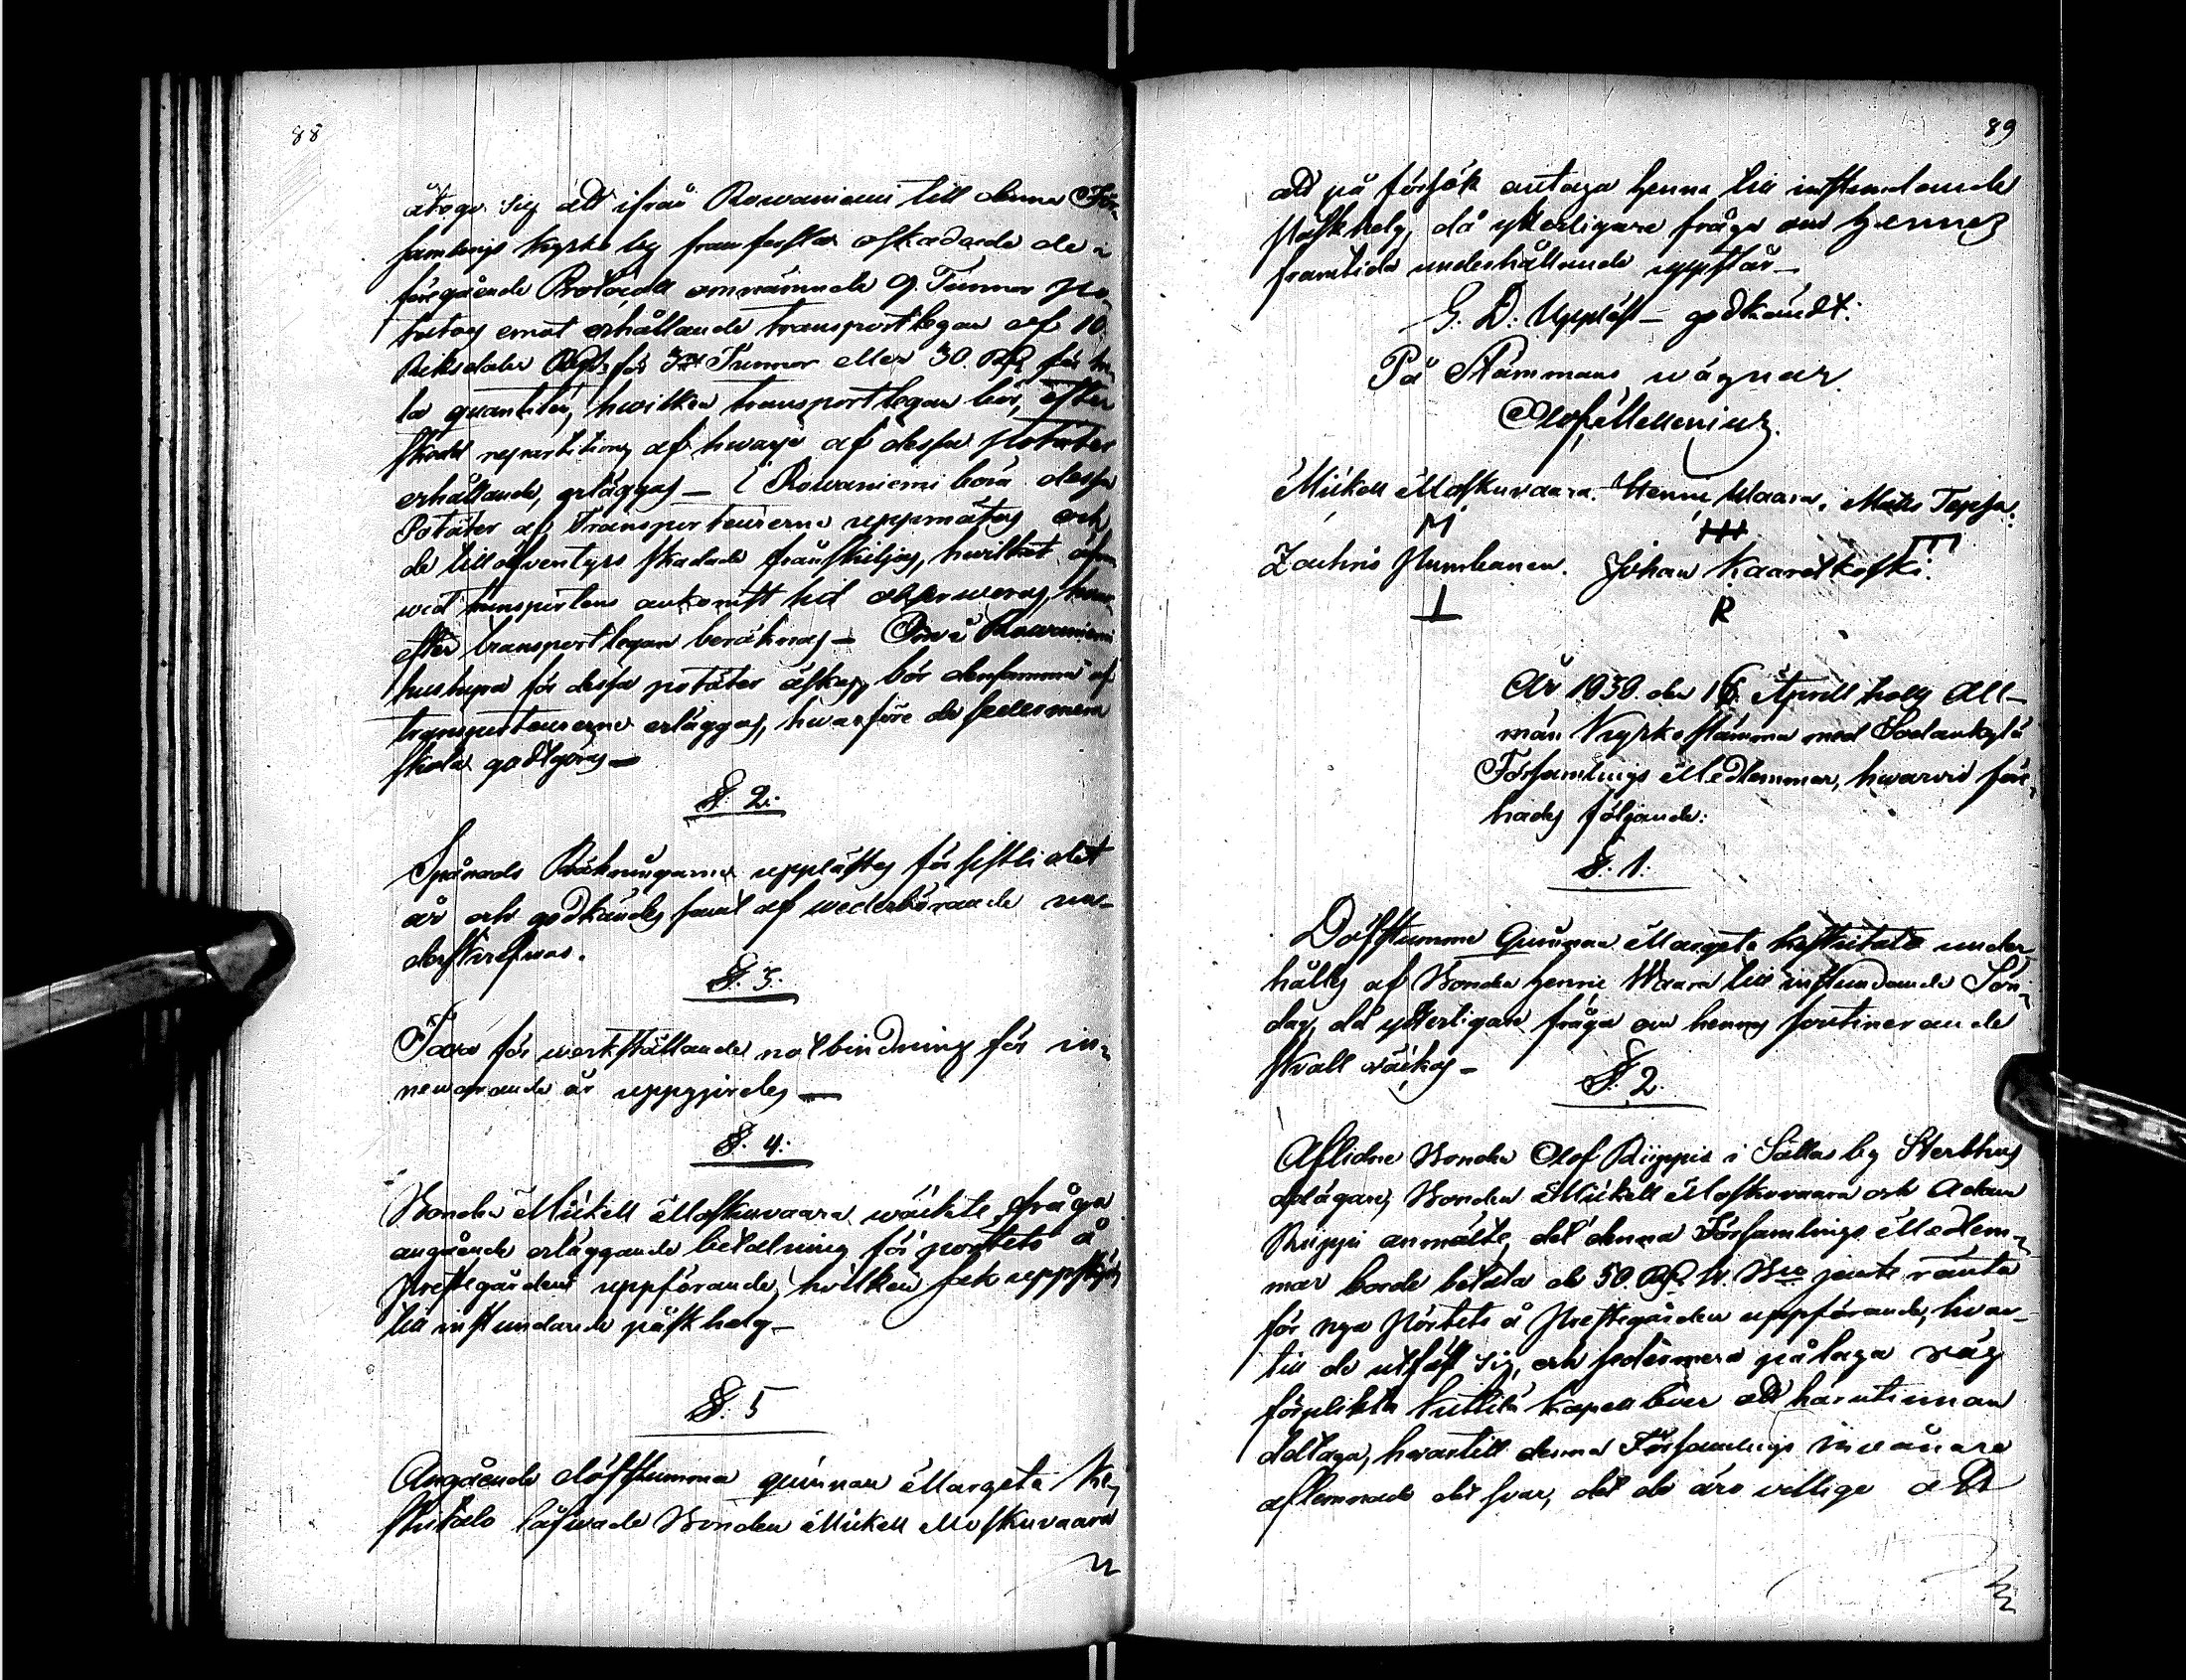 88
åtogo sig att ifrån Rowaniemi till denna För-
samlings kyrko by framforsla oskadade de i
föregående Protocoll omnämnde 9. Tunnor Po-
tater emot erhållande transportlegan af 10.
Riksdaler Rgs för Tunnor eller 30. Rd för he-
la quantitén, hwilken transportlegan bör, efter
skedd repartition, af hwarje af dessa Potater
erhållande, erläggas — I Rowaniemi böra dessa
Potäter af transporteurerne uppmätas och
de till äfwentyrs skadade frånskiljas, hwilket äfwen
wid transportens ankomst hit observeras,
efter transportlegan beräknas — Om i Rowaniemi
hushyra för dessa potäter äskas, bör densamma af
transporteurerne erläggas, hwarföre de sedermera
skola godtgöras —
§. 2.
Spånads Räkningarne upplästes för sistlidet
år och godkändes samt af wederbörande un-
derskrefwos.
§. 3.
Taxa för werkställande notbindning för in-
newarande år uppgjordes —
§. 4.
Bonden Mickell Moskuvaara wäckte fråga
angående erläggande betalning för pörtets å
Prestgården uppförande, hvilken sak uppskjöts
till instundande påskhelg —
§. 5
Angående döfstumma quinnan Margeta Ke-
skitalo låfwade Bonden Mickell Moskuvaara
89
att på försök antaga henne till instundande
Påskhelg, då ytterligare fråga om hennes
framtida underhållande uppstår —
G. D. Uppläst — godkändt.
På Stämmans wägnar
Olof Mellenius.
Mickell Moskuvaara. Henric Waara. Matts Tepsa.
M III TTT
Zachris Kumbanen. Johan Kaaretkoski.
I R
År 1839. den 16. Aprill hölls All-
män Kyrkostämma med Sodankylä
Församlings Medlemmar, hwarvid före-
hades följande:
§. 1.
Döfstumma Quinnan Margeta Keskitalo under-
hålles af Bonden Henric Waara till instundande Sön-
dag, då ytterligare fråga om hennes fortinerande
skall väckas —
§. 2.
Aflidne Bonden Olof Riippis i Sallas by Sterbhus
delägare, Bonden Mickell Moskuvaara och Adam
Riippi anmälte, det denna Församlings Medlem-
mar borde betala de 50. Rd B. Bco jemte ränta
för nya Pörtets å Prestegården uppförande, hvar-
till de utfäst sig, och sedermera på laga väg
förplikta Kittilä Kapellboer att härutinnan
deltaga, hwartill denna Församlings invånare
aflemnade det svar, det de äro villige att